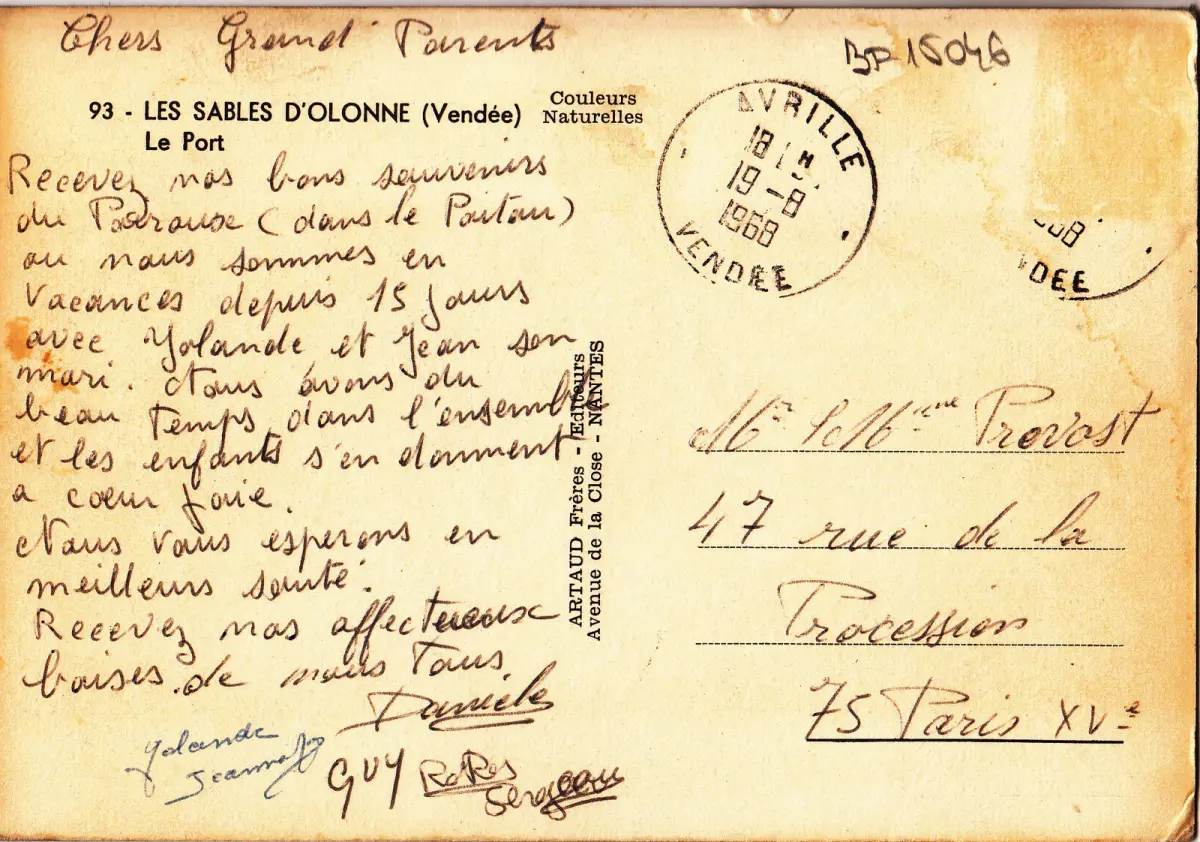 Chers Grand Parents
BP 15046
93 - LES SABLES D'OLONNE (Vendée)
Le Port
Couleurs
Naturelles
Recevez nos bons souvenirs
du Poiroux (dans le Poitou)
ou nous sommes en
vacances depuis 15 jours
avec Yolande et Jean son
mari. Nous avons du
beau temps dans l'ensemble
et les enfants s'en donnent
a coeur joie.
Nous vous esperons en
meilleurs santé.
Recevez nos affectueux
baises de nous tous
Danièle
Yolande
GUY
AVRILLE
18 H
19 -8
1968
VENDÉE
968
DEE
ARTAUD Frères - Editeurs
Avenue de la Close - NANTES
Mr & Mme Provost
47 rue de la
Procession
75 Paris XVe